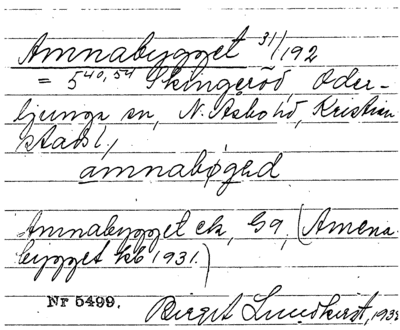 Amnabygget 31/192
= 5 40,54 Skingeröd, Oder-
ljunga sn, N. Åsbo hd, Kristian
stads l.,
amnabøged
Amnabygget ek, G9, (Amena
bygget kb 1931.)
Nr 5499. Birgit Lundkvist, 193